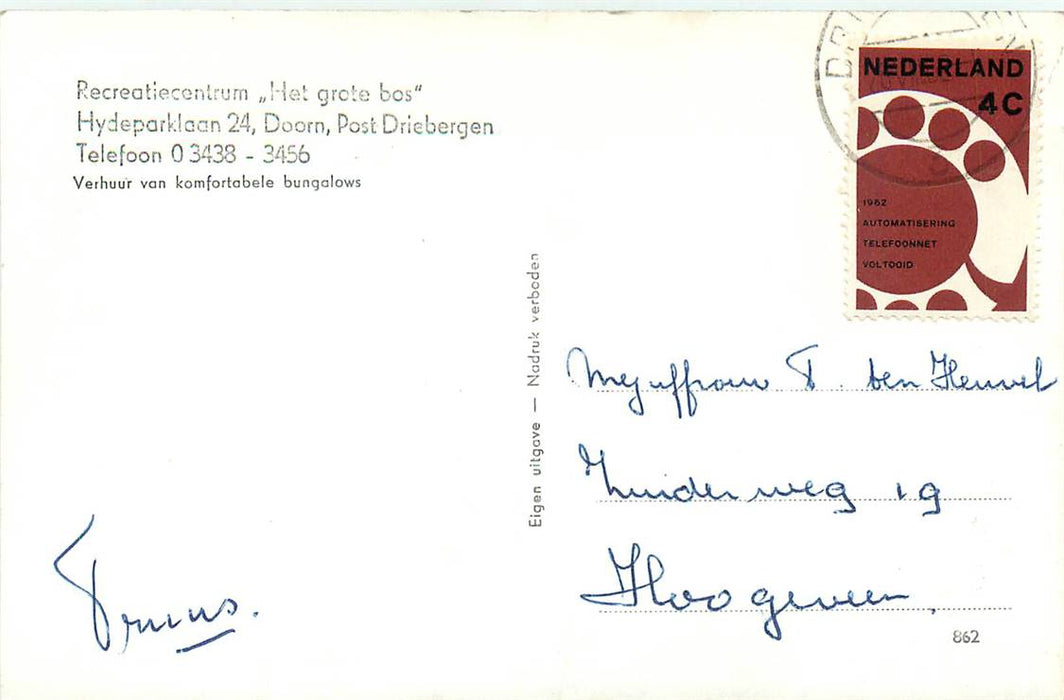 Recreatiecentrum „Het grote bos"
Hydeparklaan 24, Doorn, Post Driebergen
Telefoon 0 3438 - 3456
Verhuur van komfortabele bungalows
Eigen uitgave — Nadruk verboden
NEDERLAND
4 C
1962
AUTOMATISERING
TELEFOONNET
VOLTOOID
Mejuffrouw T. ten Heuvel
Zuiderweg 19
Hoogeveen.
862